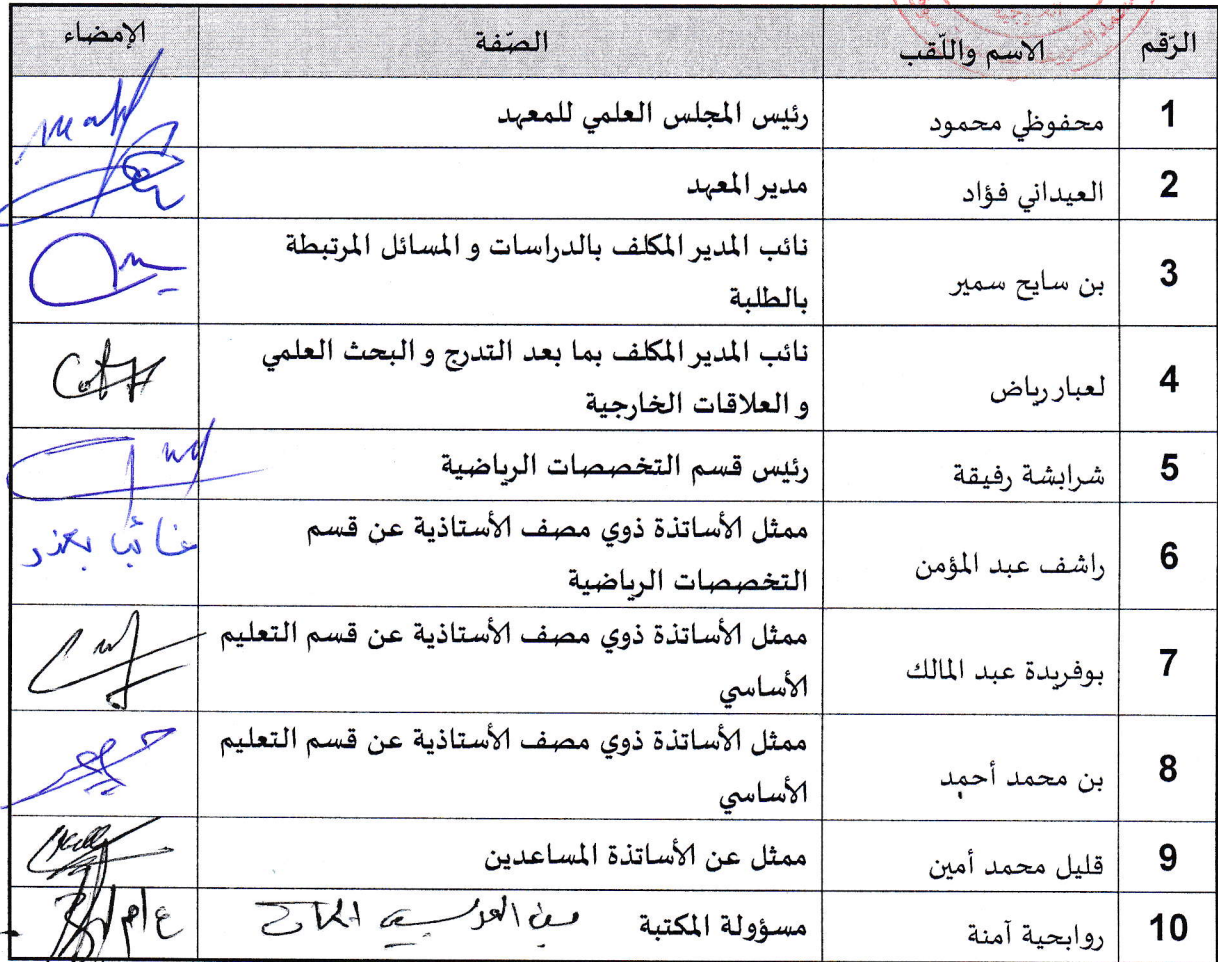 الرّقم الاسم واللّقب الصّفة الإمضاء
1 محفوظي محمود رئيس المجلس العلمي للمعهد
2 العيداني فؤاد مدير المعهد
3 بن سايح سمير نائب المدير المكلف بالدراسات و المسائل المرتبطة
بالطلبة
4 لعبار رياض نائب المدير المكلف بما بعد التدرج و البحث العلمي
و العلاقات الخارجية
5 شرابشة رفيقة رئيس قسم التخصصات الرياضية
6 راشف عبد المؤمن ممثل الأساتذة ذوي مصف الأستاذية عن قسم غائب بعذر
التخصصات الرياضية
7 بوفريدة عبد المالك ممثل الأساتذة ذوي مصف الأستاذية عن قسم التعليم
الأساسي
8 بن محمد أحمد ممثل الأساتذة ذوي مصف الأستاذية عن قسم التعليم
الأساسي
9 قليل محمد أمين ممثل عن الأساتذة المساعدين
10 روابحية آمنة مسؤولة المكتبة